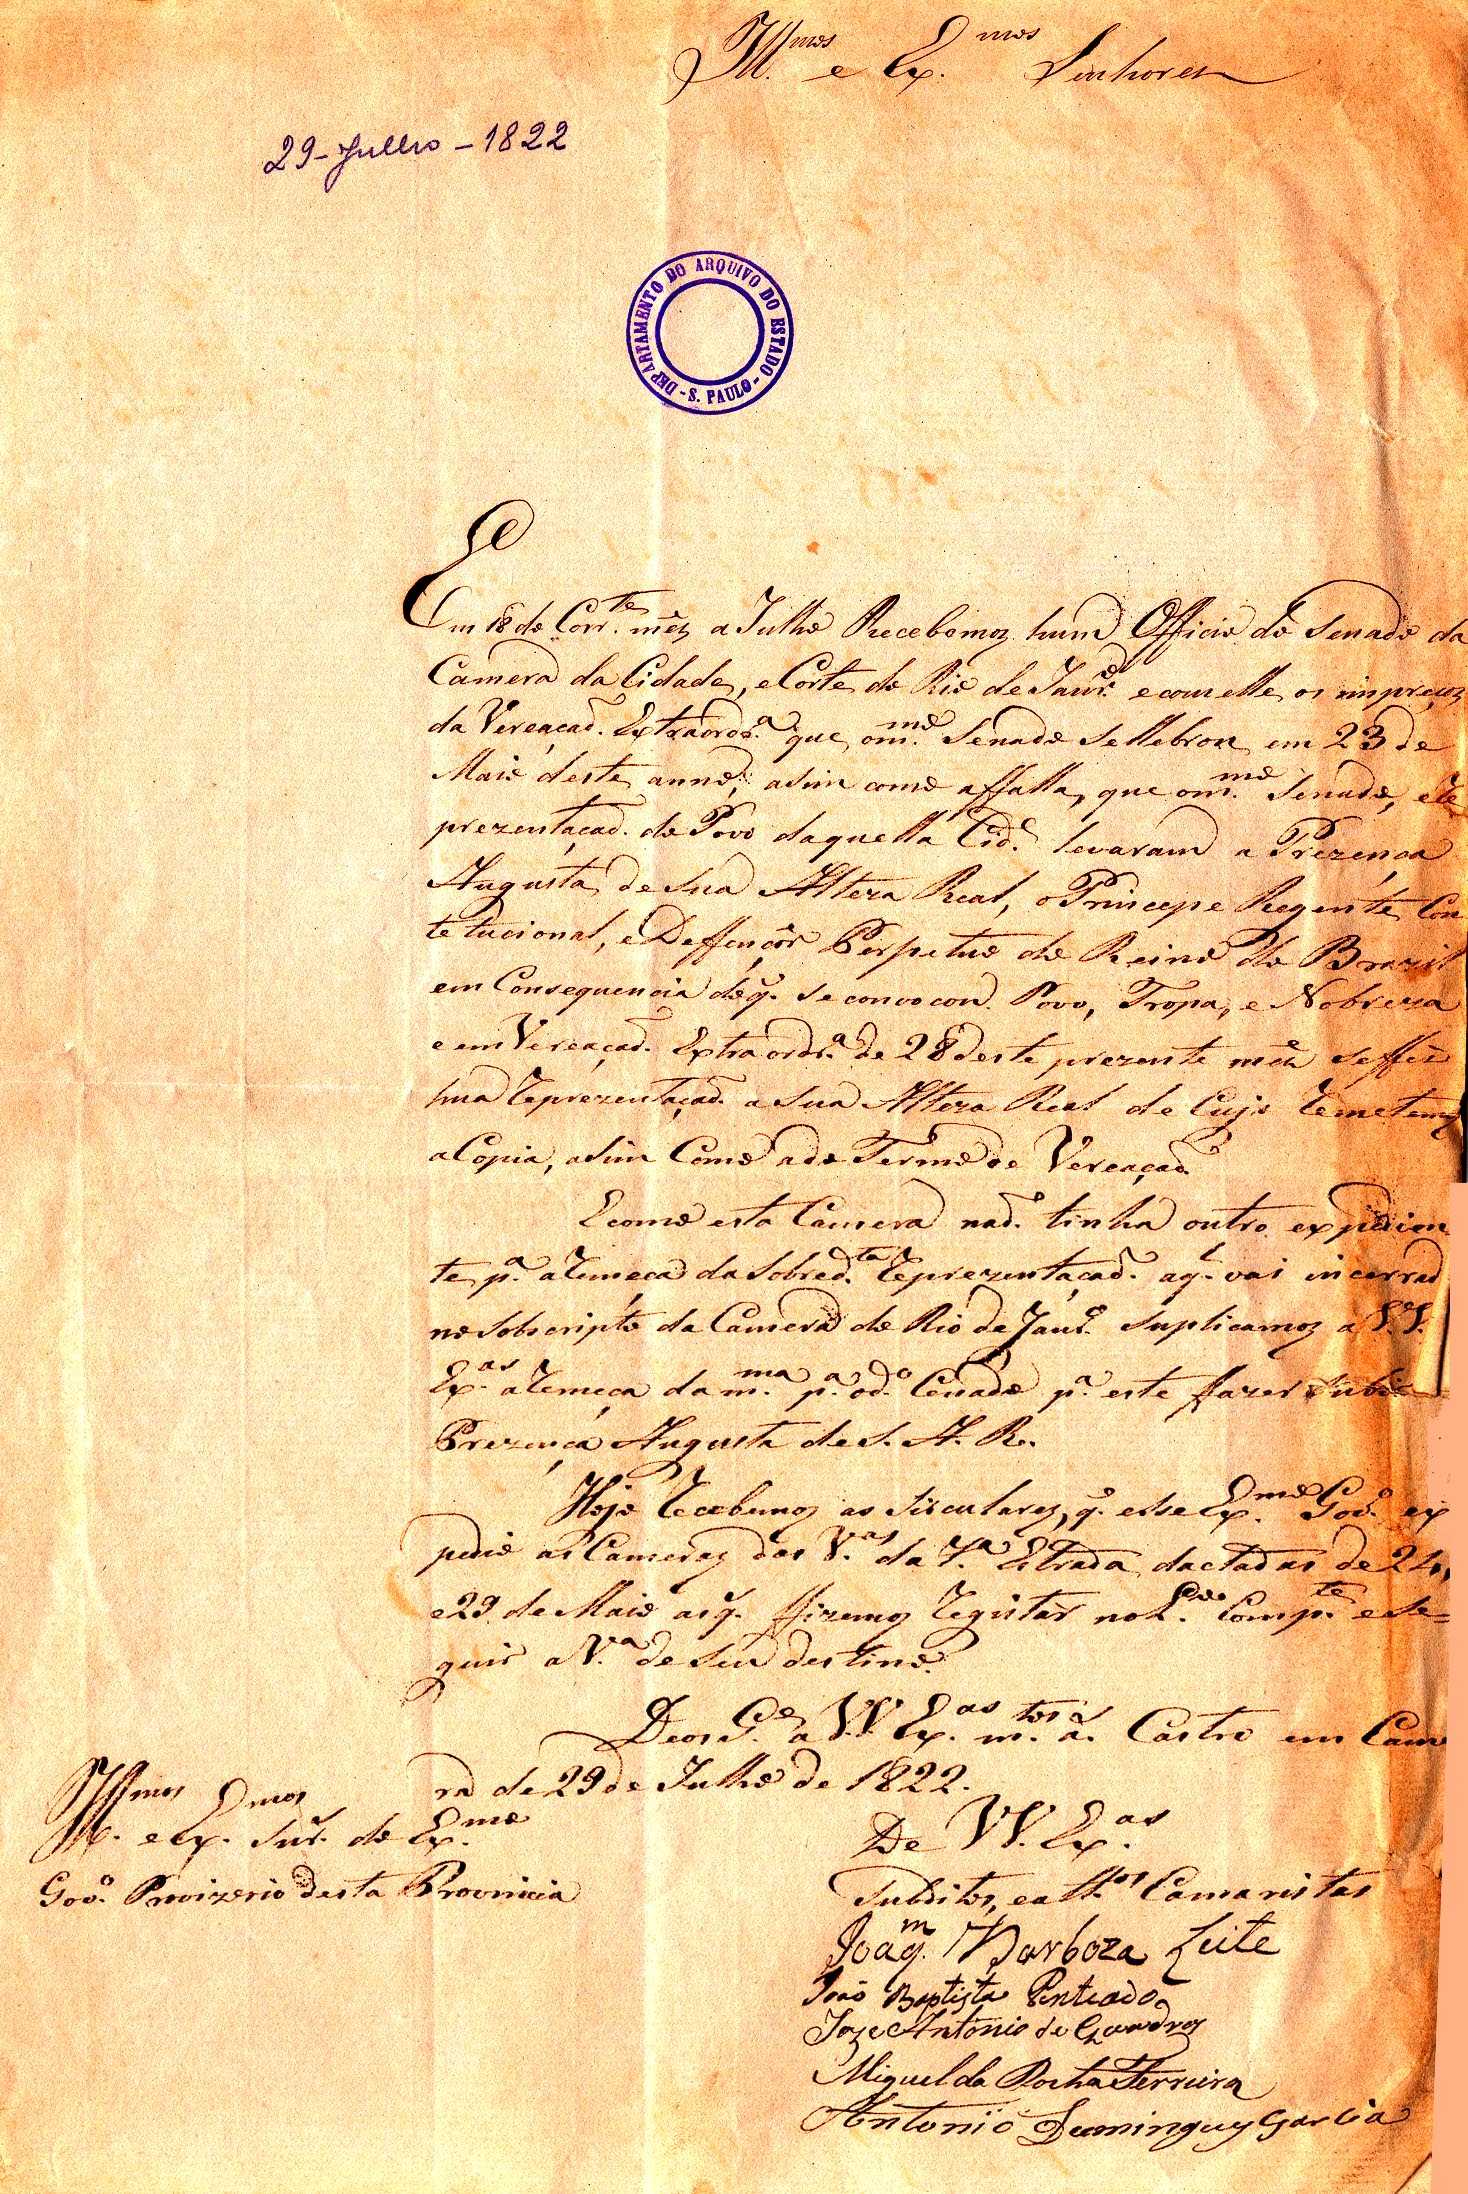 Ill.mos e Ex.mos Senhores
29-Julho-1822
DEPARTAMENTO DO ARQUIVO DO ESTADO - S. PAULO -
Em 18 do Corr.te mêz a Julho Recebemoz hum Officio do Senado da
Camera da Cidade, e Corte do Rio de Janr.o e com elle os impreços
da Vereaçaõ. Extraordr.a que o m.mo Senado Sellebrou em 23 de
Maio deste anno, asim como a ffalla, que o m.mo Senado, e Re
prezentaçaõ. do Povo daquella Cid.e levaram a Prezença
Augusta de Sua Alteza Real, o Princepe Regente Con
tetucional, e Deffençôr Perpetuo do Reino do Brazil
em Consequencia doq.e se convocou Povo, Tropa, e Nobreza
e em Vereaçaõ. Extraordr.a de 28 deste prezente mêz se ffes
hua Reprezentaçaõ. a Sua Alteza Real de Cujo Remetemoz
a Copia, asim Como a do Termo de Vereaçaõ
E como esta Camera naõ. tinha outro expedien
te p.a a Remeça da Sobred.ta Reprezentaçaõ. aq.l vai incerrad
no Sobscripto da Camera do Rio de Janr.o Suplicamoz a V.V.
Ex.as a Remeça da m.ma p.a o d.o Cenado p.a este fazer Subir
Prezença Augusta de S. A. R.
Hoje Recebemoz as Sirculares, q.e esse Ex.mo Gov.o ex
pedio as Cameraz das V.as da T.a Estrada dactadas de 24,
e 29 de Maio asq.e ffizemoz Registar no L.o Comp.te e se=
guir a V.a de Seu destino.
Deos G.e a V.V. Ex.as m.tos a.s Castro em Came
ra de 29 de Julho de 1822.
Ill.mos e Ex.mos Snr.es do Ex.mo
Gov.o Provizerio desta Provincia
De VV. Ex.as
Subditos, e att.os Camaristas
Joaq.m Barboza Leite
Joaõ Baptista Penteado
Joze Antonio de Quadros
Miguel da Rocha Ferreira
Antonio Dominguez Garcia